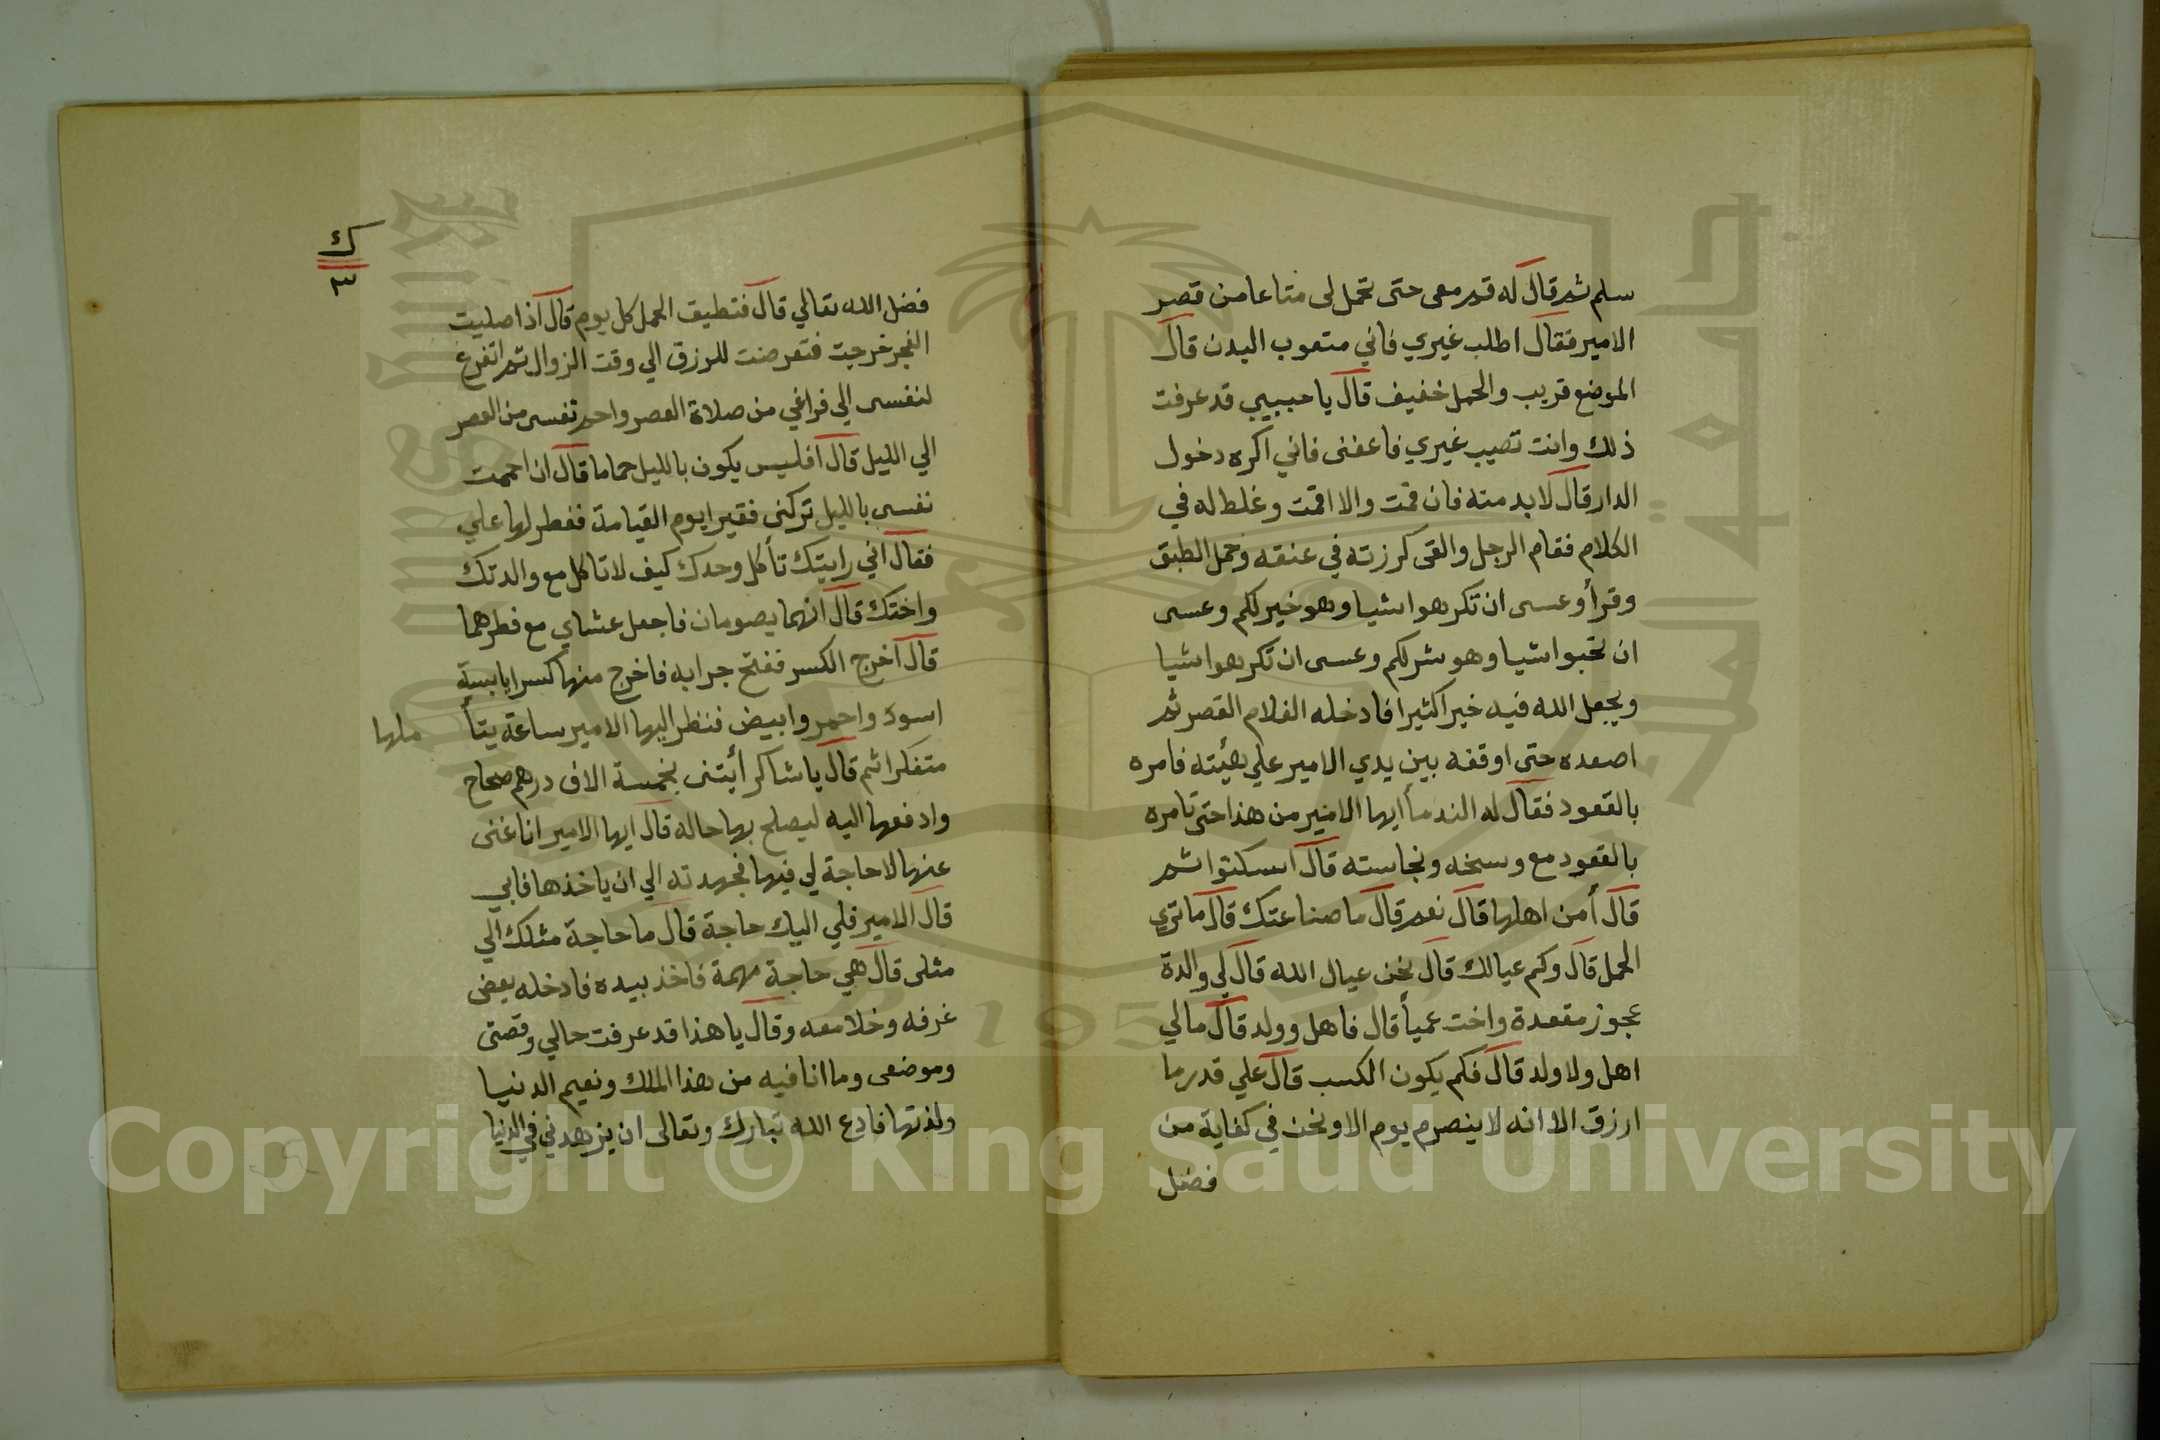 سلم ثم قال له قم معى حتى تحمل لى متاعا من قصر
الامير فقال اطلب غيري فاني متعوب البدن قال
الموضع قريب والحمل خفيف قال يا حبيبي قد عرفت
ذلك وانت تصيب غيري فاعفنى فاني اكره دخول
الدار قال لا بد منه فان قمت والا اقمت وغلط له في
الكلام فقام الرجل والقى كرزته في عنقه وحمل الطبق
وقرأ وعسى ان تكرهوا شيا وهو خير لكم وعسى
ان تحبوا شيا وهو شر لكم وعسى ان تكرهوا شيا
ويجعل الله فيه خيرا كثيرا فادخله الغلام القصر ثم
اصعده حتى اوقفه بين يدي الامير علي هيئته فامره
بالقعود فقال له الندماء ايها الامير من هذا حتى تامره
بالقعود مع وسخه ونجاسته قال اسكتوا ثم
قال أمن اهلها قال نعم قال ما صناعتك قال ما تري
الحمل قال وكم عيالك قال نحن عيال الله قال لي والدة
عجوز مقعدة واخت عمياء قال فاهل وولد قال مالي
اهل ولا ولد قال فكم يكون الكسب قال علي قدر ما
ارزق الا انه لا ينصرم يوم الا ونحن في كفاية من
فضل
ك
٣
فضل الله تعالي قال فتطيق الحمل كل يوم قال اذا صليت
الفجر خرجت فتعرضت للرزق الي وقت الزوال ثم اتفرغ
لنفسى الي فراغي من صلاة العصر واحم نفسى من العصر
الي الليل قال افليس يكون بالليل حماما قال ان احممت
نفسى بالليل تركنى فقيرا يوم القيامة ففطر لها علي
فقال اني رايتك تأكل وحدك كيف لا تاكل مع والدتك
واختك قال انهما يصومان فاجعل عشاي مع فطرهما
قال اخرج الكسر ففتح جرابه فاخرج منها كسرا يابسة
اسود واحمر وابيض فنظر اليها الامير ساعة يتأ ملها
متفكرا ثم قال يا شاكر أيتنى بخمسة الاف درهم صحاح
وادفعها اليه ليصلح بها حاله قال ايها الامير انا غنى
عنها لا حاجة لي فيها فجهد ته الي ان ياخذها فابي
قال الامير فلي اليك حاجة قال ما حاجة مثلك الي
مثلى قال هي حاجة مهمة فاخذ بيده فادخله بعض
غرفه وخلا معه وقال يا هذا قد عرفت حالي وقصتى
وموضعى وما انا فيه من هذا الملك ونعيم الدنيا
ولذتها فادع الله تبارك وتعالى ان يزهدني في الدنيا
Copyright © King Saud University
1957